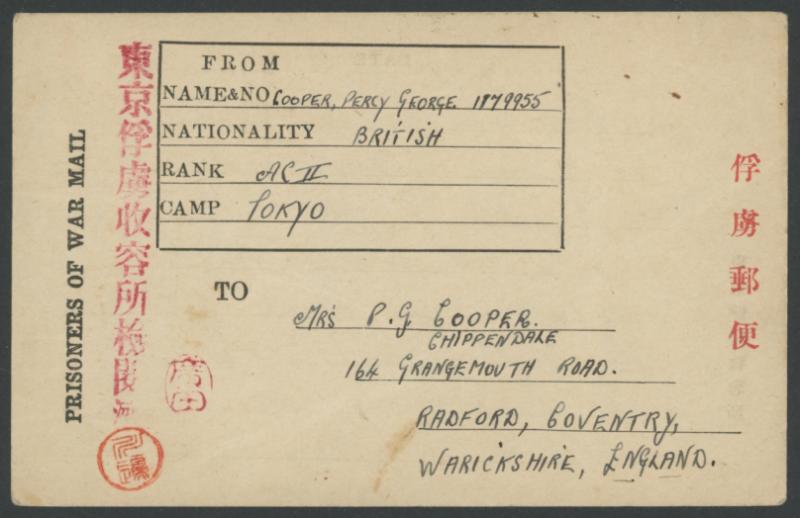 PRISONERS OF WAR MAIL
東京俘虜收容所検閲済
FROM
NAME&NO COOPER, PERCY GEORGE. 1179955
NATIONALITY BRITISH
RANK AC II
CAMP TOKYO
俘虜郵便
TO
MRS P. G COOPER.
CHIPPENDALE
164 GRANGEMOUTH ROAD.
RADFORD, COVENTRY,
WARICKSHIRE, ENGLAND.